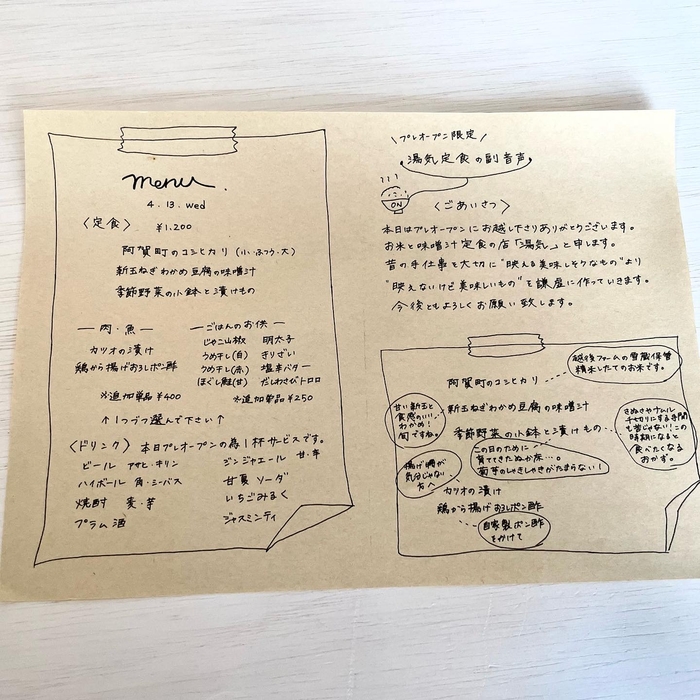 menu
4.13.wed
〈定食〉 ¥1.200
阿賀町のコシヒカリ（小・ふつう・大）
新玉ねぎわかめ豆腐の味噌汁
季節野菜の小鉢と漬けもの
ー肉・魚ー
カツオの漬け
鶏から揚げおろしポン酢
※追加単品¥400
ーごはんのお供ー
じゃこ山椒 明太子
うめ干し(白) きりざい
うめ干し(赤) 塩辛バター
ほぐし鮭(甘) だしわさびトロロ
※追加単品¥250
↑1つづつ選んで下さい↑
〈ドリンク〉本日プレオープンの為1杯サービスです。
ビール アサヒ・キリン
ハイボール 角・シーバス
焼酎 麦・芋
プラム酒
ジンジャエール 甘・辛
甘夏ソーダ
いちごみるく
ジャスミンティ
\プレオープン限定/
湯気定食の副音声
ON
〈ごあいさつ〉
本日はプレオープンにお越し下さりありがとうございます。
お米と味噌汁定食の店「湯気」と申します。
昔の手仕事を大切に"映える美味しそうなもの"より
"映えないけど美味しいもの"を謙虚に作っていきます。
今後ともよろしくお願い致します。
越後ファームの雪蔵保管
精米したてのお米です。
阿賀町のコシヒカリ
甘い新玉と
食感のいい
わかめ！
旬ですね。
新玉ねぎわかめ豆腐の味噌汁
季節野菜の小鉢と漬けもの
きぬさやナムル
千切りにする手間
も苦じゃない！この
時期になると
食べたくなる
おかず。
この日のために
育ててきたぬか床…。
菊芋のしゃきしゃきがたまらない！
揚げ物が
気分じゃない
方へ
カツオの漬け
鶏から揚げおろしポン酢
自家製ポン酢
をかけて